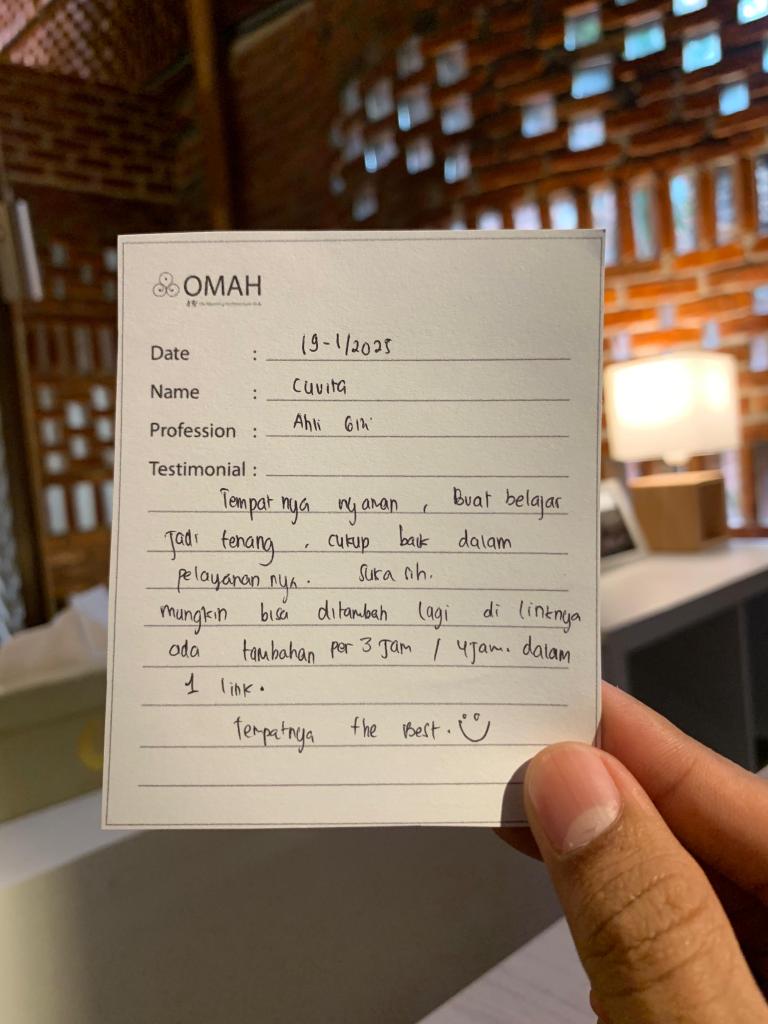 OMAH
Date : 19-1/2025
Name : Cuvita
Profession : Ahli Gizi
Testimonial :
Tempat nya nyaman, Buat belajar
Jadi tenang, cukup baik dalam
pelayanan nya. Suka sih.
mungkin bisa ditambah lagi di linknya
ada tambahan per 3 Jam / 4 Jam. dalam
1 link.
tempatnya the Best.